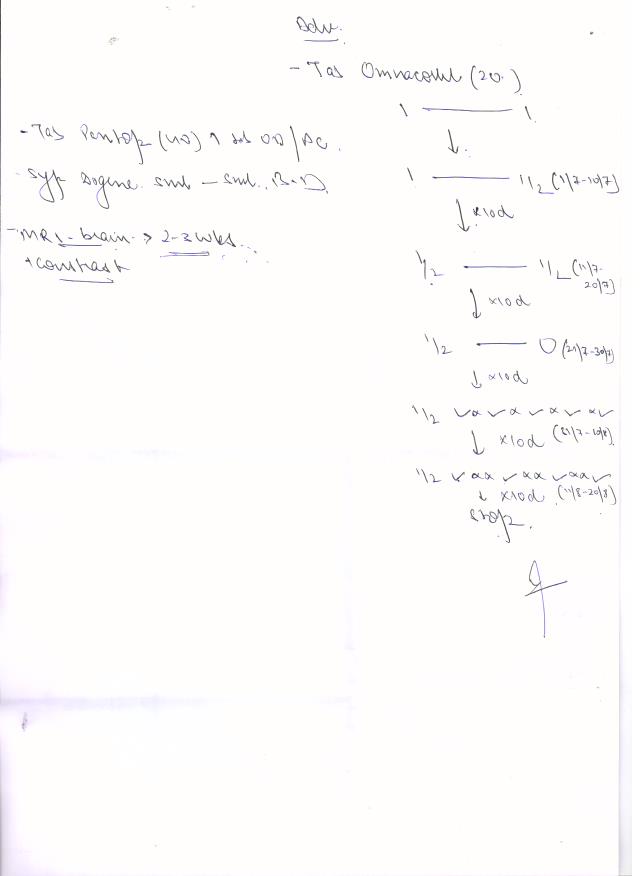 Adv.
- Tab Omnacortil (20)
1 —— 1
↓
1 —— 1/2 (1/7-10/7)
↓ x10d
1/2 —— 1/2 (11/7-
20/7)
↓ x10d
1/2 —— 0 (21/7-30/7)
↓ x10d
1/2 ✓x ✓x ✓x ✓x✓
↓ x10d (31/7-10/8)
1/2 ✓xx ✓xx ✓xx✓
↓ x10d (11/8-20/8)
stop.
- Tab Pentop (40) 1 tab OD/AC.
- Syp 5ml – 5ml. B.D.
- MRI-brain → 2-3wks.
+contrast